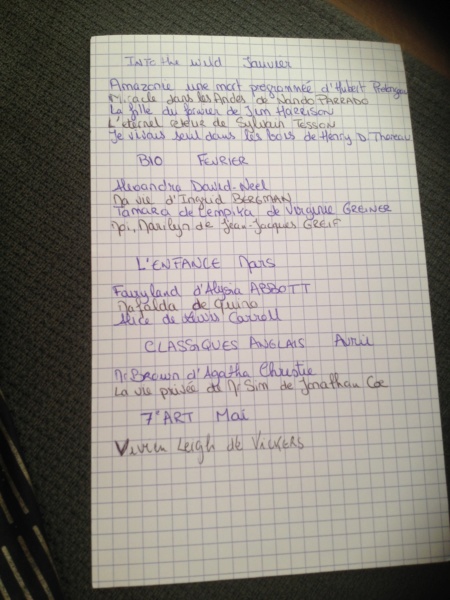 INTO the Wild Janvier
Amazonie une mort programmée d'Hubert Prolongeau
Miracle dans les Andes de Nando PARRADO
La fille du fermier de Jim HARRISON
L'éternel retour de Sylvain TESSON
Je vivais seul dans les bois de Henry D. Thoreau
BIO FEVRIER
Alexandra David-Neel
Ma vie d'Ingrid BERGMAN
Tamara de Lempika de Virginie GREINER
Moi, Marilyn de Jean-Jacques GREIF
L'ENFANCE Mars
Fairyland d'Alysia ABBOTT
Mafalda de Quino
Alice de Lewis Carroll
CLASSIQUES ANGLAIS Avril
Mr Brown d'Agatha Christie
La vie privée de Mr Sim de Jonathan Coe
7e ART Mai
Vivien Leigh de VICKERS